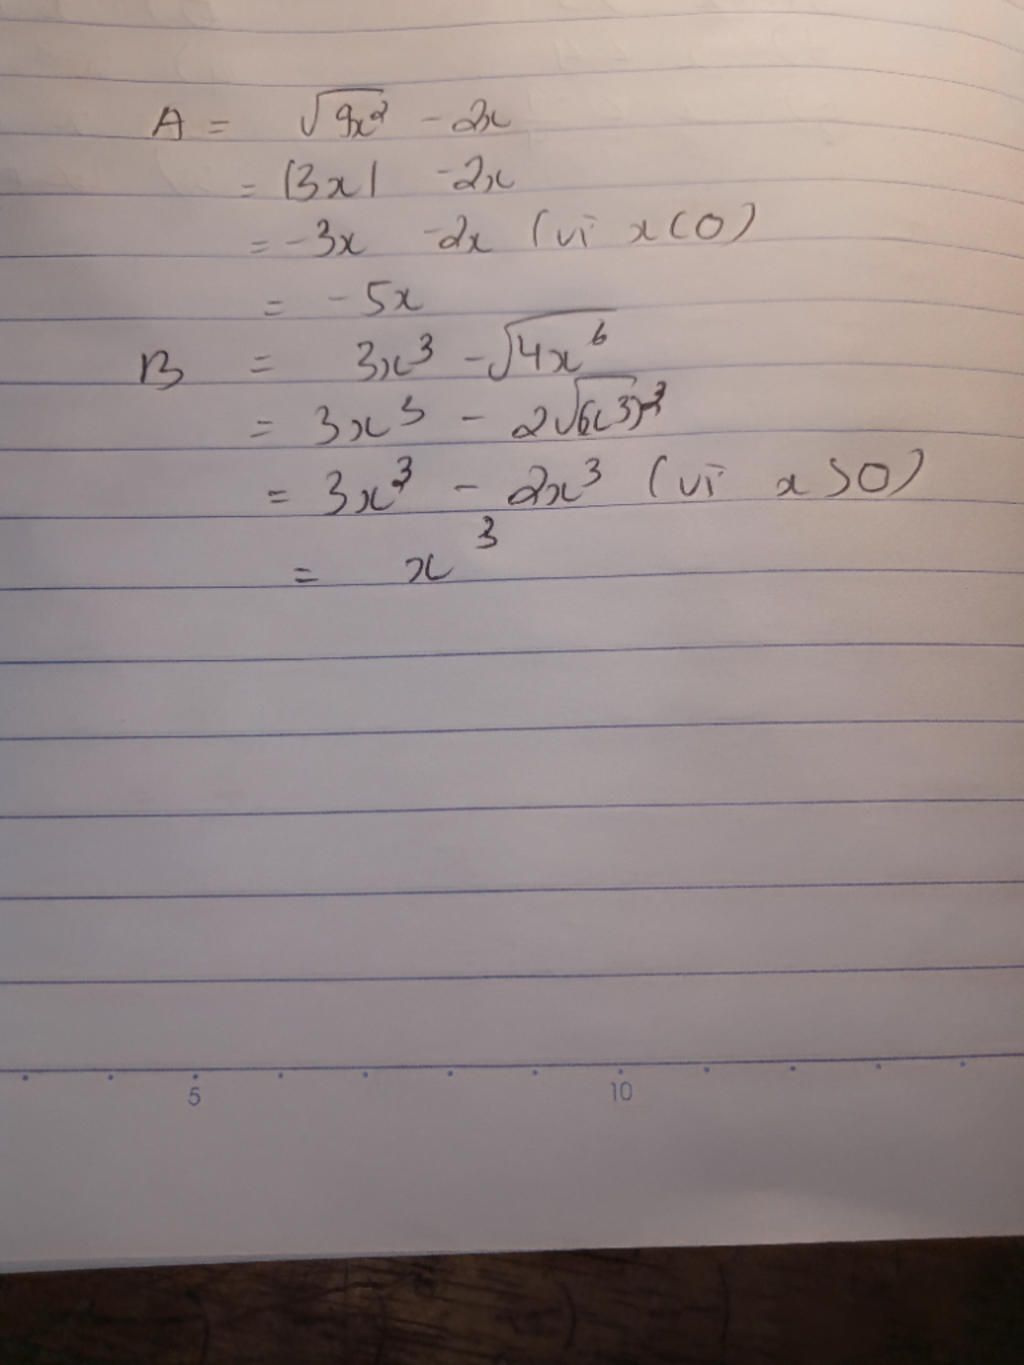 A = √9x² - 2x
= |3x| - 2x
= -3x -2x (vì x<0)
= -5x
B = 3x³ - √4x⁶
= 3x³ - 2√(x³)²
= 3x³ - 2x³ (vì x>0)
= x³
5 10